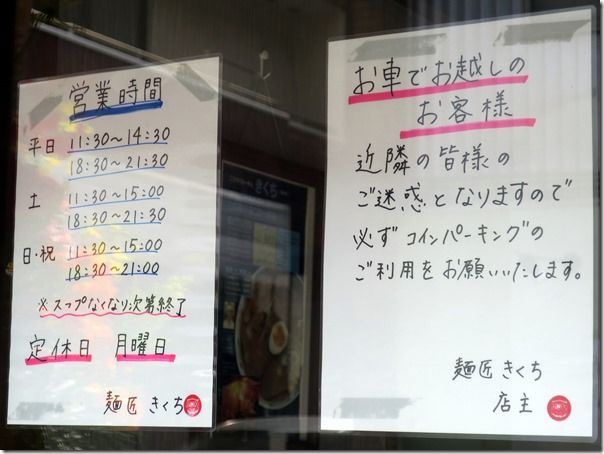 営業時間
平日 11:30〜14:30
18:30〜21:30
土 11:30〜15:00
18:30〜21:30
日・祝 11:30〜15:00
18:30〜21:00
※スープなくなり次第終了
定休日 月曜日
麺匠 きくち
お車でお越しの
お客様
近隣の皆様の
ご迷惑となりますので
必ずコインパーキングの
ご利用をお願いいたします。
麺匠 きくち
店主
きくち